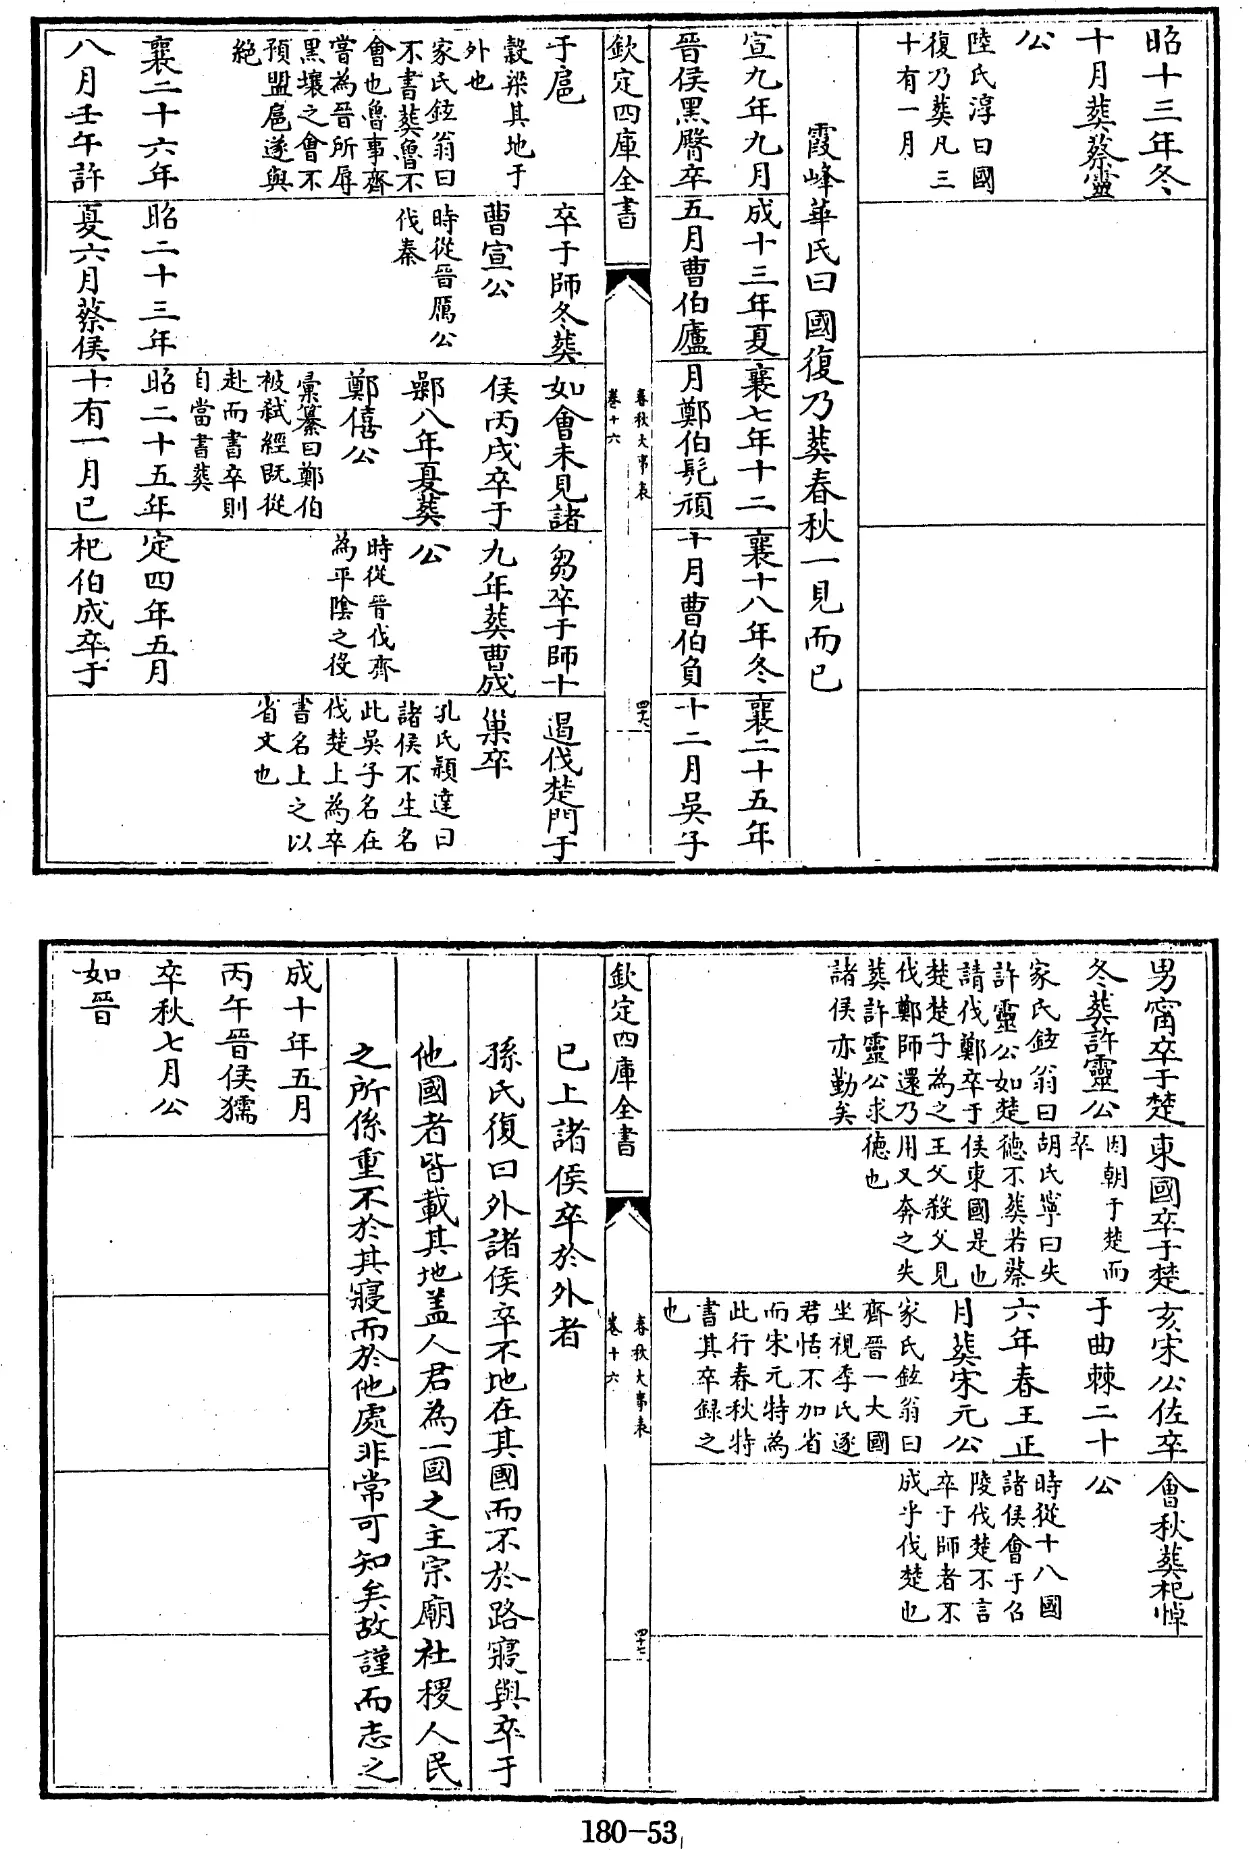 昭十三年冬
十月葬蔡靈
公
陸氏淳曰國
復乃葬凡三
十有一月
霞峰華氏曰國復乃葬春秋一見而已
宣九年九月
晉侯黑臀卒
成十三年夏
五月曹伯廬
襄七年十二
月鄭伯髠頑
襄十八年冬
十月曹伯負
襄二十五年
十二月吳子
欽定四庫全書
春秋大事表
卷十六
四六
于扈
穀梁其地于
外也
家氏鉉翁曰
不書葬魯不
會也魯事齊
嘗為晉所辱
黑壤之會不
預盟扈遂與
絕
卒于師冬葬
曹宣公
時從晉厲公
伐秦
如會未見諸
侯丙戌卒于
鄵八年夏葬
鄭僖公
彙纂曰鄭伯
被弒經既從
赴而書卒則
自當書葬
芻卒于師十
九年葬曹成
公
時從晉伐齊
為平陰之役
遏伐楚門于
巢卒
孔氏穎達曰
諸侯不生名
此吳子名在
伐楚上為卒
書名上之以
省文也
襄二十六年
八月壬午許
昭二十三年
夏六月蔡侯
昭二十五年
十有一月己
定四年五月
杞伯成卒于
男甯卒于楚
冬葬許靈公
家氏鉉翁曰
許靈公如楚
請伐鄭卒于
楚楚子為之
伐鄭師還乃
葬許靈公求
諸侯亦勤矣
東國卒于楚
因朝于楚而
卒
胡氏寧曰失
德不葬若蔡
侯東國是也
王父殺父見
用又奔之失
德也
亥宋公佐卒
于曲棘二十
六年春王正
月葬宋元公
家氏鉉翁曰
齊晉一大國
坐視季氏逐
君恬不加省
而宋元特為
此行春秋特
書其卒録之
也
會秋葬杞悼
公
時從十八國
諸侯會于召
陵伐楚不言
卒于師者不
成乎伐楚也
欽定四庫全書
春秋大事表
卷十六
四十七
已上諸侯卒於外者
孫氏復曰外諸侯卒不地在其國而不於路寢與卒于
他國者皆載其地盖人君為一國之主宗廟社稷人民
之所係重不於其寢而於他處非常可知矣故謹而志之
成十年五月
丙午晉侯獳
卒秋七月公
如晉
180-53